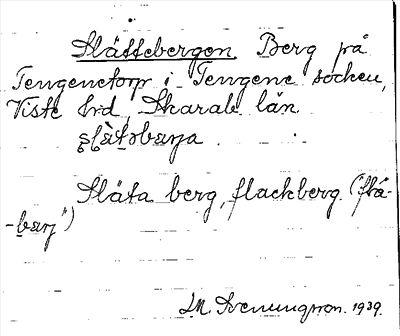 Slättebergen. Berg på
Tengenetorp i Tengene socken,
Viste hd, Skarab. län.
Släta berg, flackberg. ("flä-
-barj")
J.M. Svenungsson. 1939.